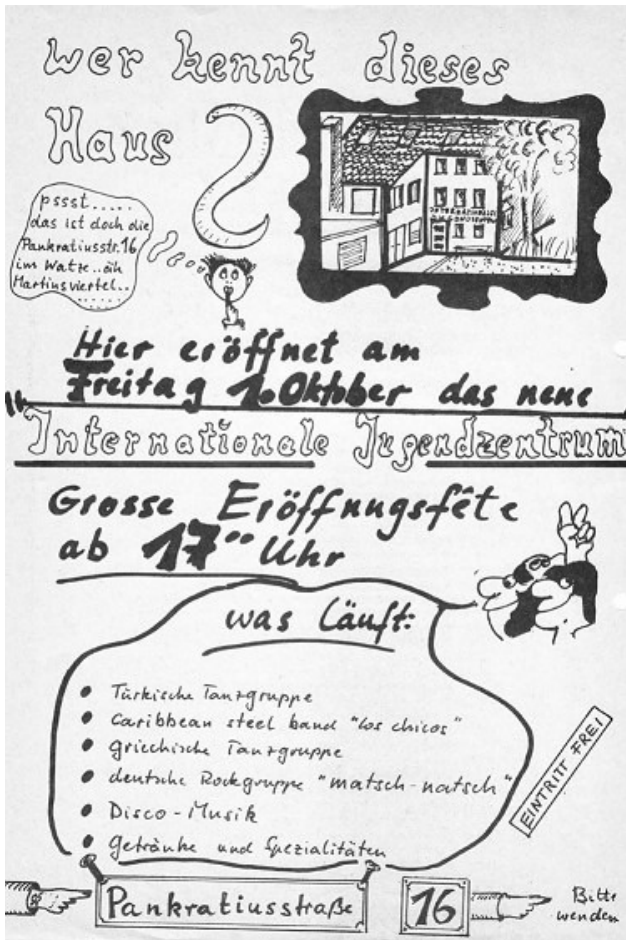 wer kennt dieses
Haus ?
pssst.....
das ist doch die
Pankratiusstr. 16
im Watze..äh
Martinsviertel..
......
INTERNATIONALES
JUGENDZENTRUM
Hier eröffnet am
Freitag 1. Oktober das neue
Internationale Jugendzentrum
Grosse Eröffnungsfête
ab 17°° Uhr
was läuft:
• Türkische Tanzgruppe
• Caribbean steel band "los chicos"
• griechische Tanzgruppe
• deutsche Rockgruppe "matsch-natsch"
• Disco-Musik
• Getränke und Spezialitäten
EINTRITT FREI
Pankratiusstraße 16
Bitte
wenden